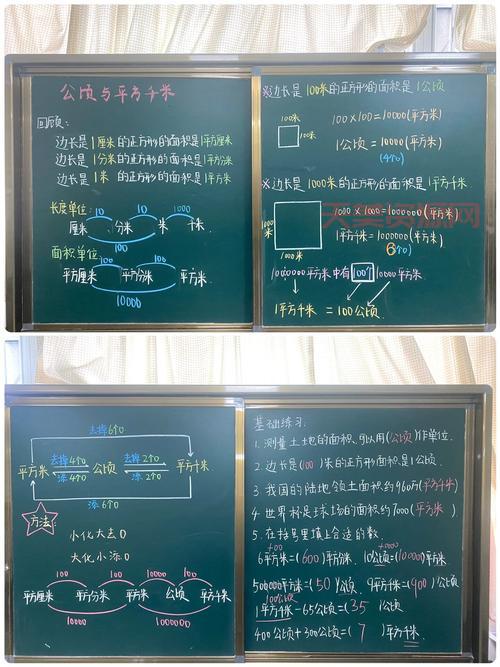 公顷与平方千米
回顾:
边长是1厘米的正方形的面积是1平方厘米
边长是1分米的正方形的面积是1平方分米
边长是1米 的正方形的面积是1平方米
长度单位:
10 10 1000
厘米 分米 米 千米
100
面积单位
100 100
平方厘米 平方分米 平方米
10000
※边长是100米的正方形的面积是1公顷
100米
100米
100×100=10000(平方米)
1公顷=10000(平方米)
(4个0)
※边长是1000米的正方形的面积是1平方千米.
1000米
1000米
1000×1000=1000000(平方米)
1平方千米=1000000(平方米).
6个0)
1000000平方米中有100个10000平方米
1平方千米=100公顷.
天美资源网
去掉6个0
平方米 去掉4个0 公顷 去掉2个0 平方千米
添4个0 添2个0
添6个0
方法:
小化大去0
大化小添0
100 100 10000 100
平方厘米 平方分米 平方米 公顷 平方千米
10000 1000000
基础练习:
1. 测量土地的面积,可以用(公顷)作单位.
2. 边长是(100)米的正方形面积是1公顷.
3. 我国的陆地领土面积约960万(平方千米)
4. 世界杯足球场的面积约7000(平方米)
5. 在括号里填上合适的数.
×100 ×10000
6平方米=(600)平方分米. 10公顷=(100000)平方米
500000平方米=(50)公顷. 9平方千米=(900)公顷
100公顷
1平方千米-65公顷=(35)公顷
400公顷+300公顷=(7)平方千米.